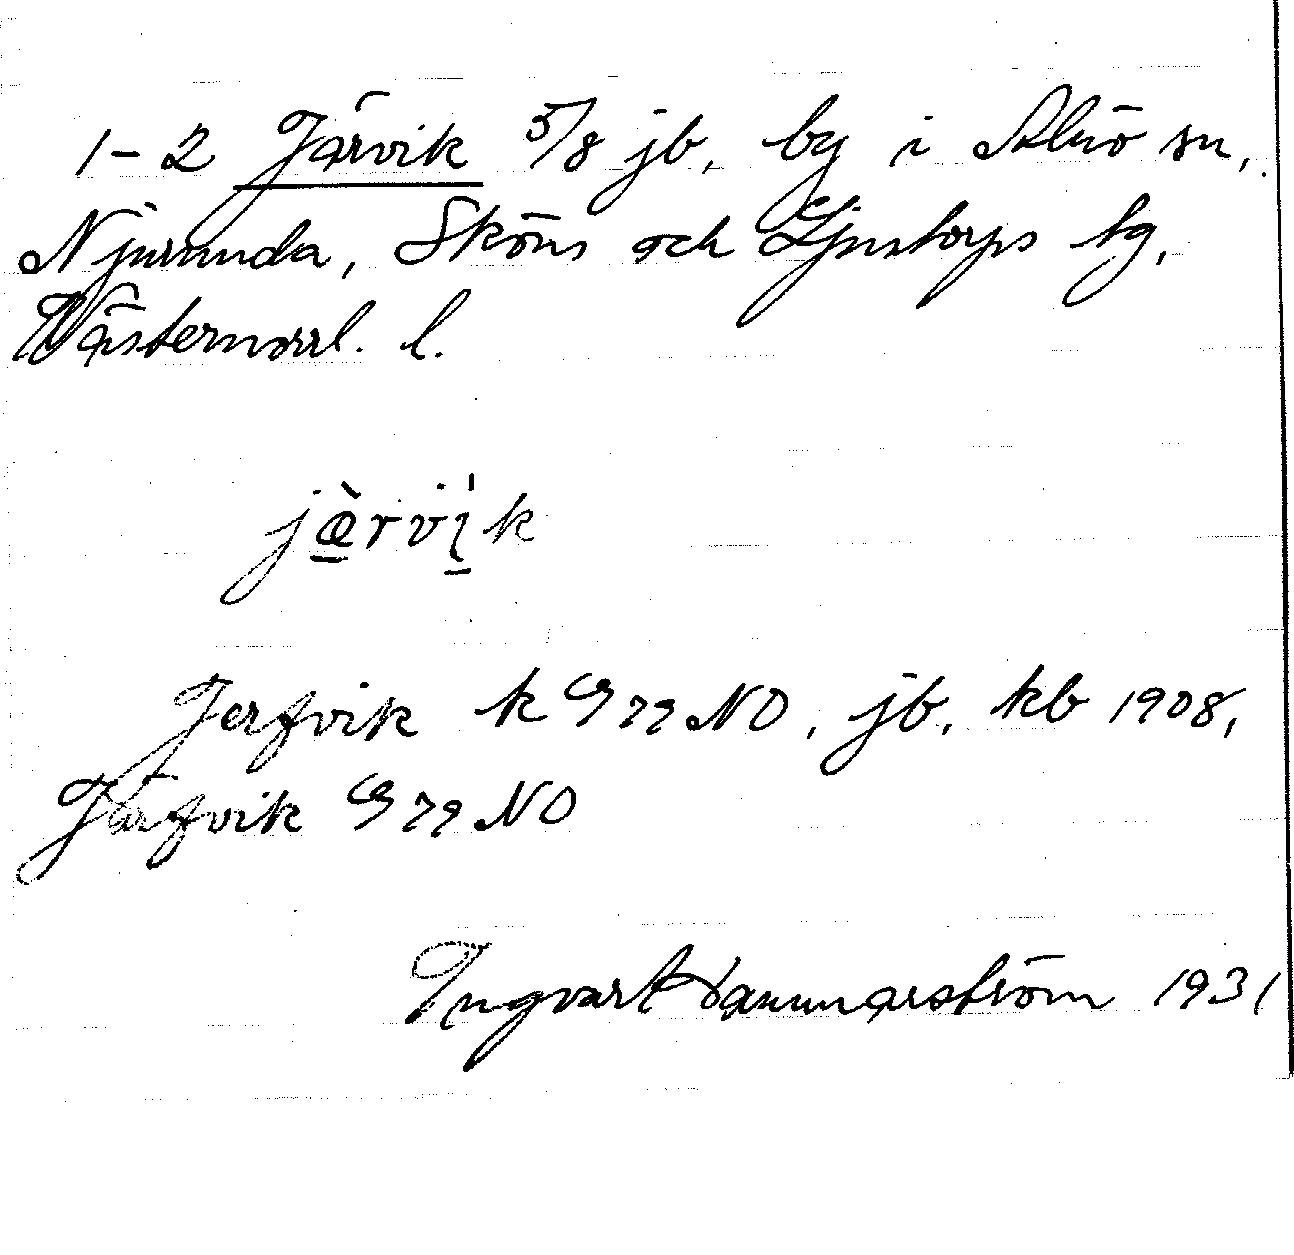 1-2 Järvik 5/8 jb, by i Alnö sn,
Njurunda, Sköns och Ljustorps tg,
Västernorrl. l.
jæ̀rvi̍k
Jerfvik k G 79 NO, jb, kb 1908,
Järfvik G 79 NO
Ingvart Hammarström 1931